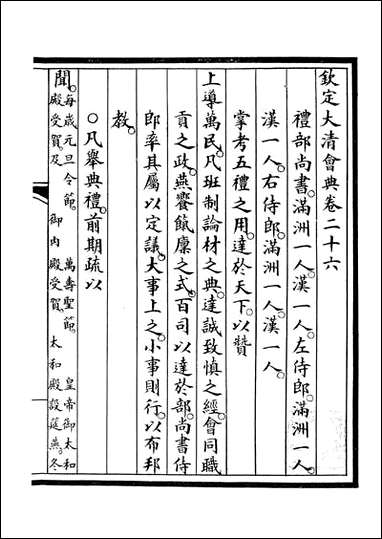 欽定大清會典卷二十六
禮部尚書。滿洲一人。漢一人。左侍郎。滿洲一人。
漢一人。右侍郎。滿洲一人。漢一人。
掌考五禮之用。達於天下。以贊
上導萬民。凡班制論材之典。達誠致慎之經。會同職
貢之政。燕饗餼廩之式。百司以達於部。尚書侍
郎率其屬以定議。大事上之。小事則行。以布邦
教。
○凡舉典禮。前期疏以
聞。每歲元旦令節。 萬壽聖節。 皇帝御太和
殿受賀。及 御內殿受賀。 太和殿設筵燕。冬